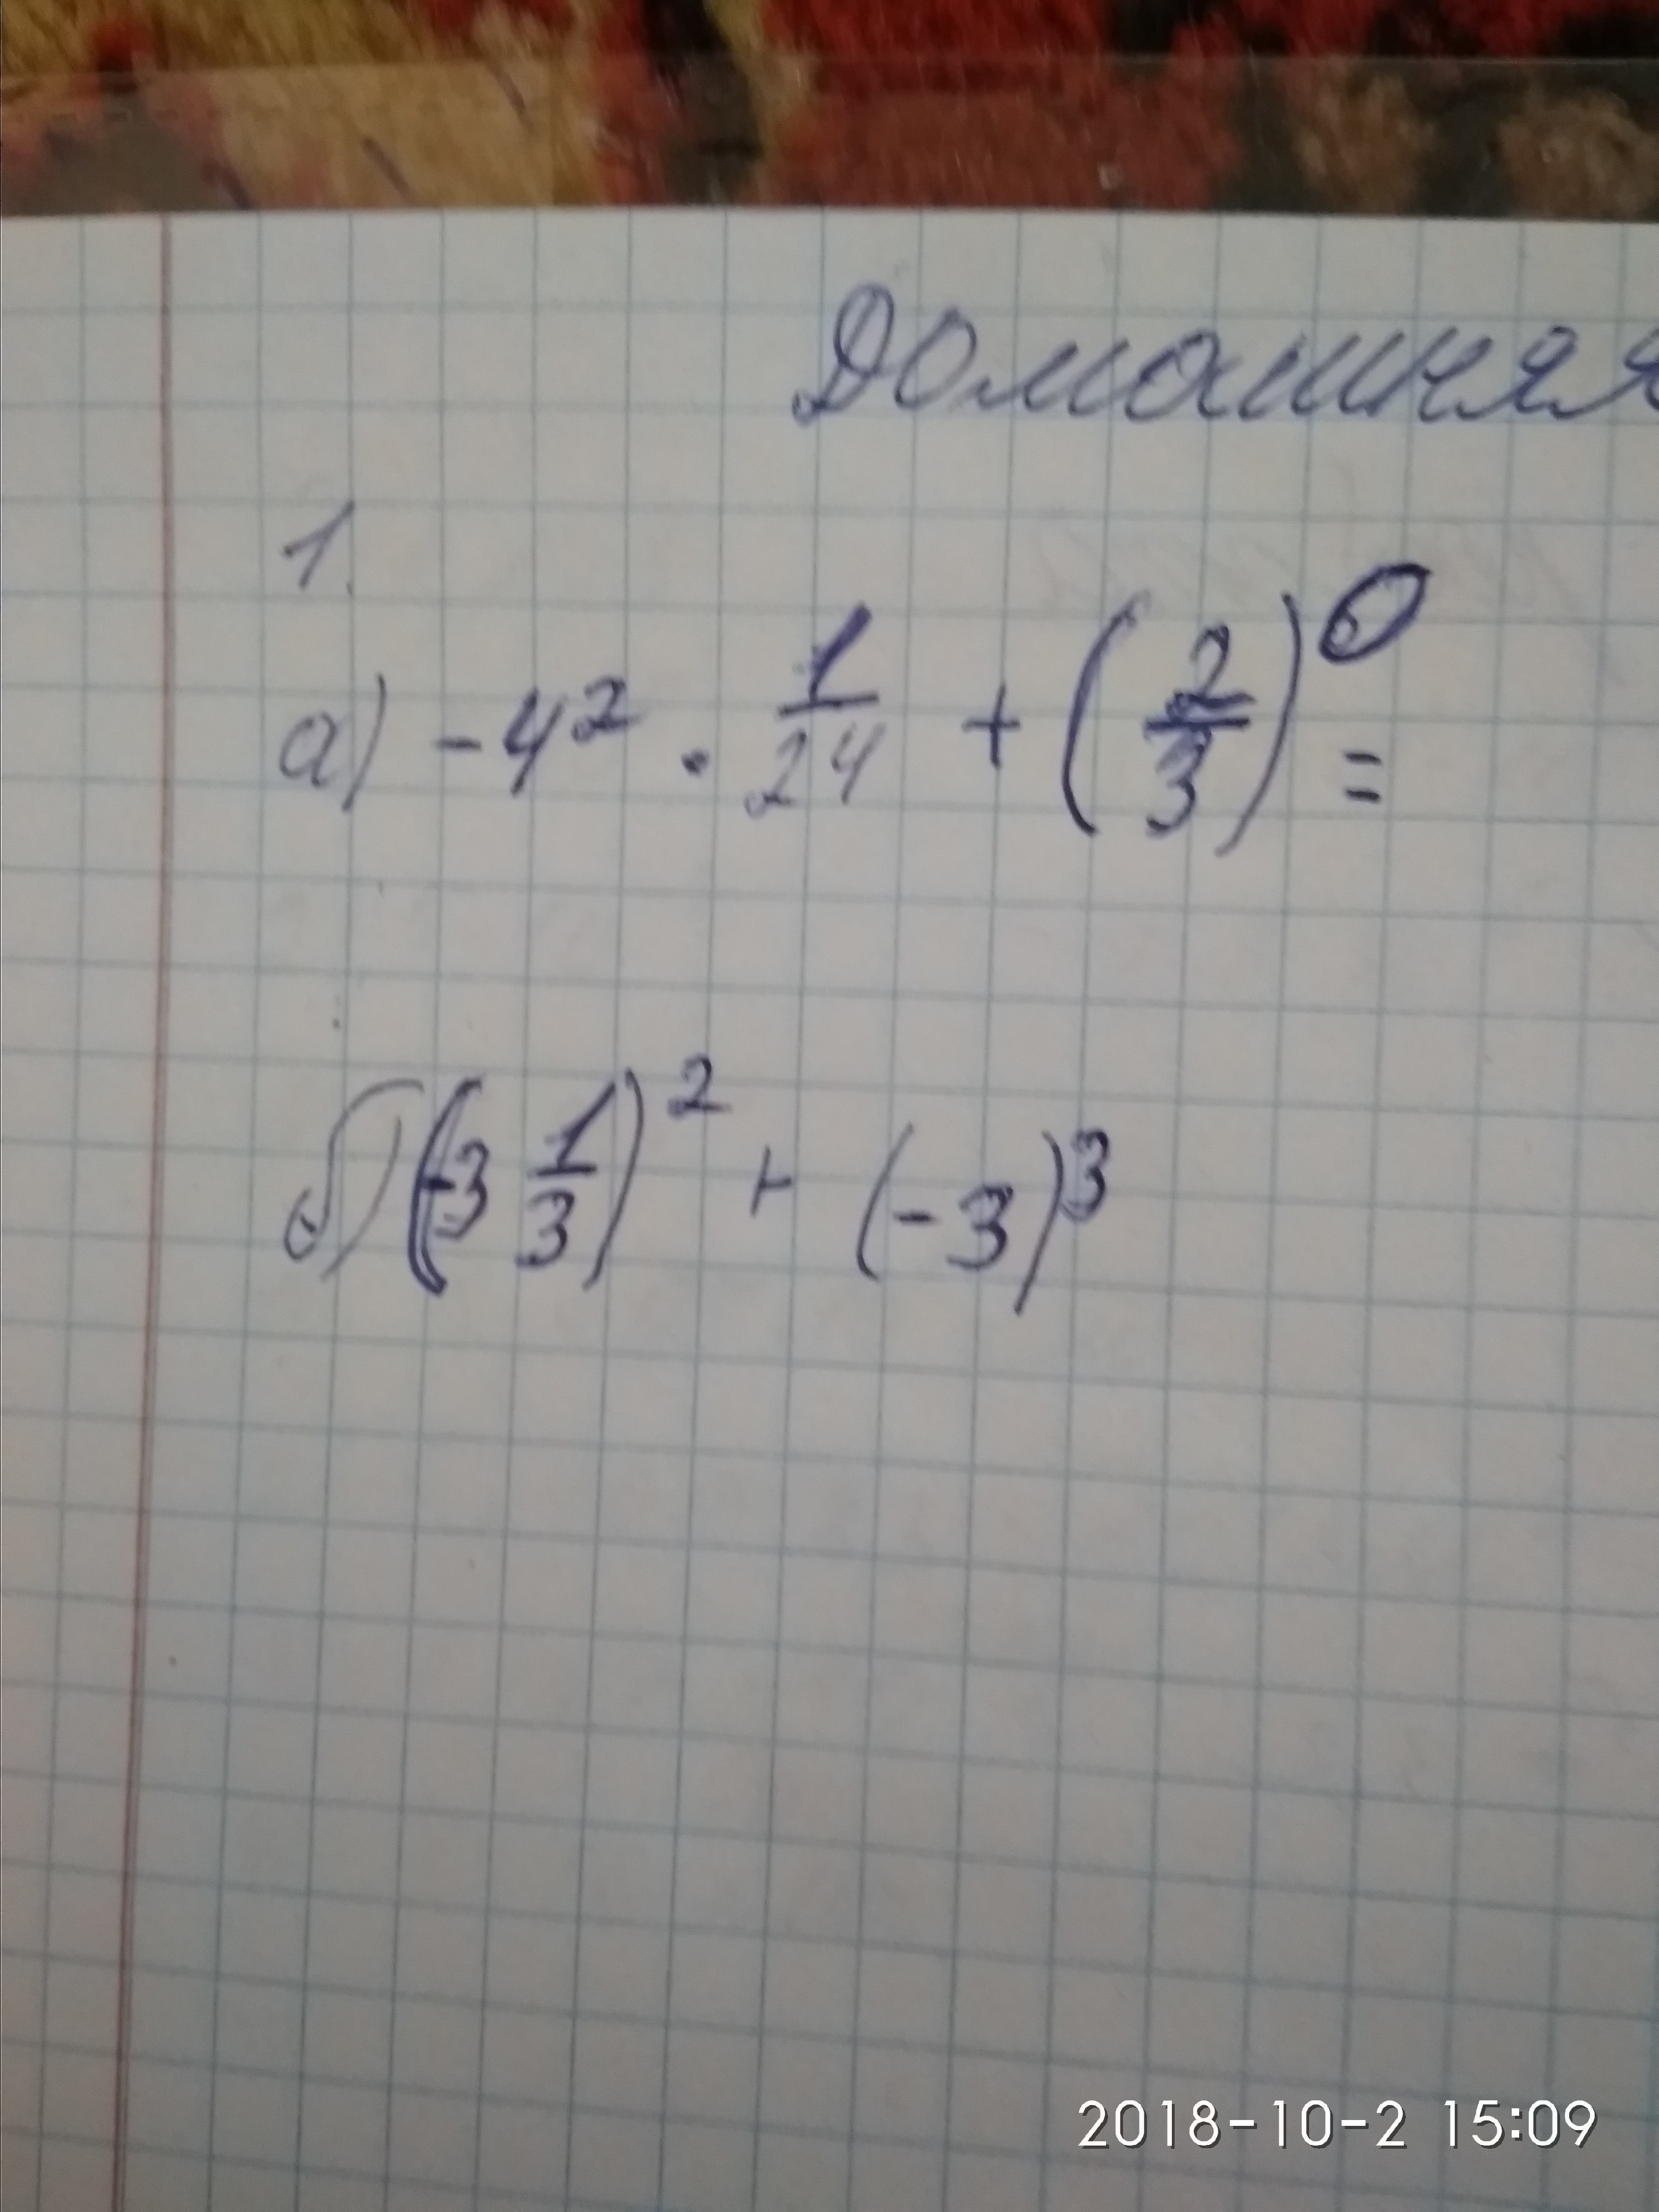 Домашняя
1.
а) -4² · 1/24 + (2/3)⁰ =
б) (-3 1/3)² + (-3)³
2018-10-2 15:09